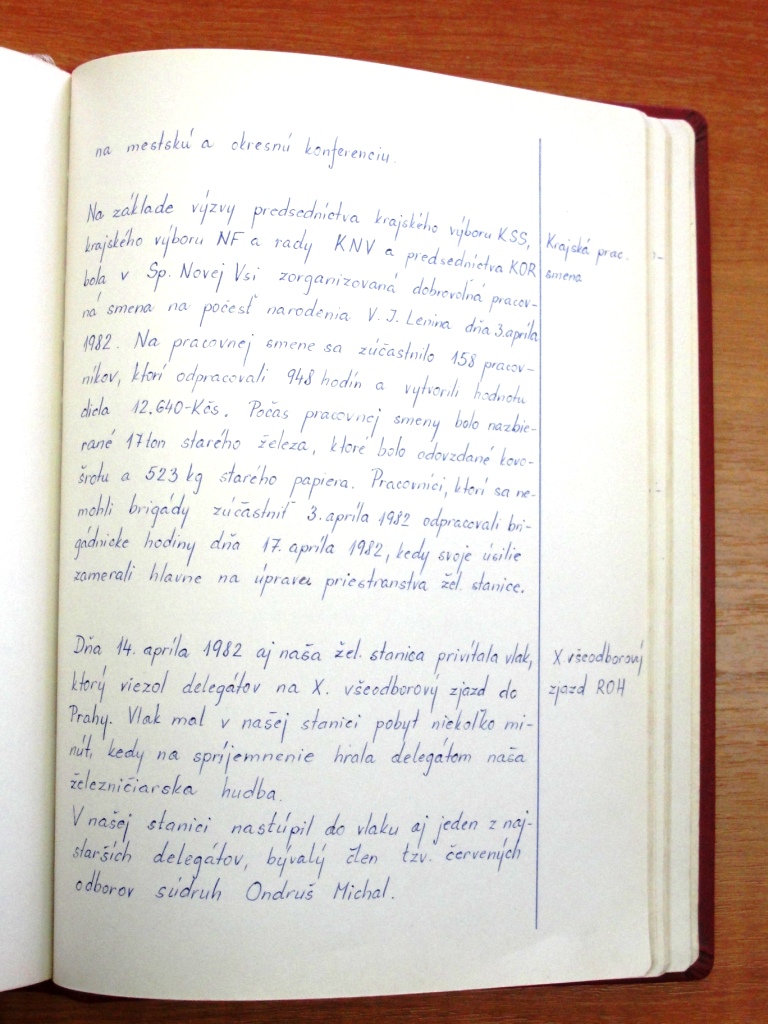 na mestskú a okresnú konferenciu.
Na základe výzvy predsedníctva krajského výboru KSS,
krajského výboru NF a rady KNV a predsedníctva KOR
bola v Sp. Novej Vsi zorganizovaná dobrovoľná pracov-
ná smena na počesť narodenia V. I. Lenina dňa 3. apríla
1982. Na pracovnej smene sa zúčastnilo 158 pracov-
níkov, ktorí odpracovali 948 hodín a vytvorili hodnotu
diela 12.640-Kčs. Počas pracovnej smeny bolo nazbie-
rané 17 ton starého železa, ktoré bolo odovzdané kovo-
šrotu a 523 kg starého papiera. Pracovníci, ktorí sa ne-
mohli brigády zúčastniť 3. apríla 1982 odpracovali bri-
gádnicke hodiny dňa 17. apríla 1982, kedy svoje úsilie
zamerali hlavne na úpravu priestranstva žel. stanice.
Krajská prac.
smena
Dňa 14. apríla 1982 aj naša žel. stanica privítala vlak,
ktorý viezol delegátov na X. všeodborový zjazd do
Prahy. Vlak mal v našej stanici pobyt niekoľko mi-
nút, kedy na spríjemnenie hrala delegátom naša
železničiarska hudba.
V našej stanici nastúpil do vlaku aj jeden z naj-
starších delegátov, bývalý člen tzv. červených
odborov súdruh Ondruš Michal.
X všeodborový
zjazd ROH